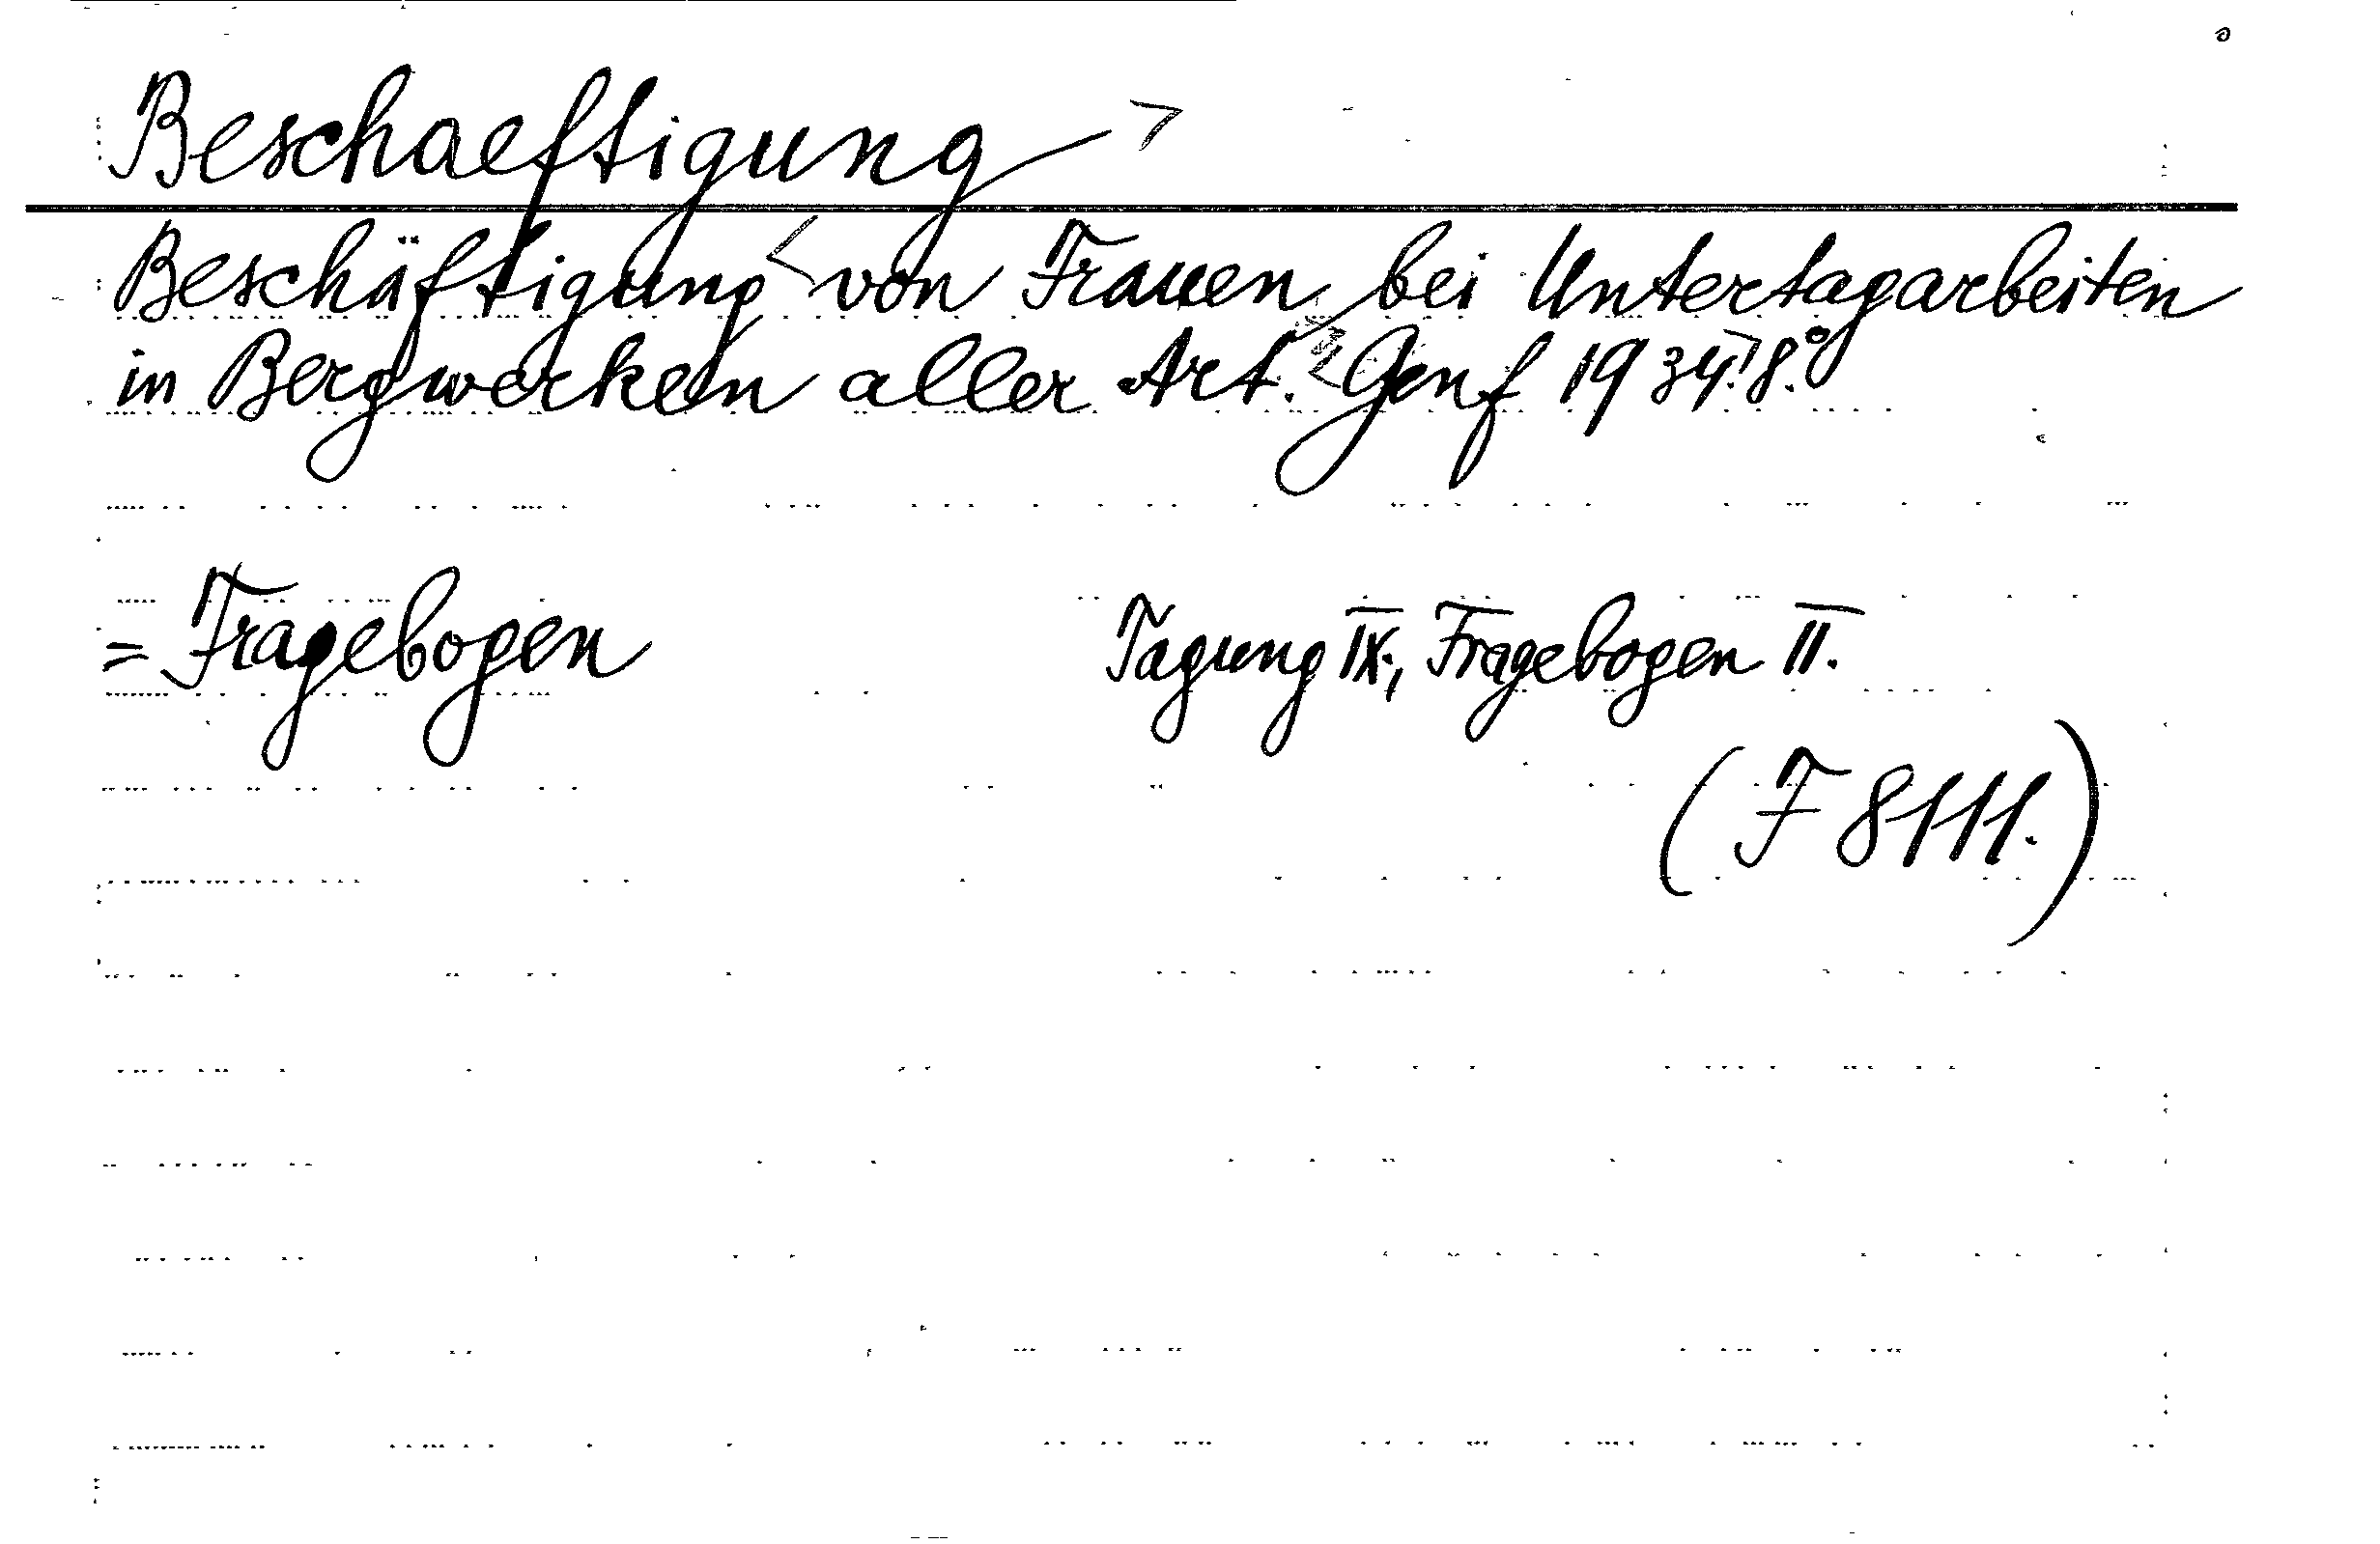 Beschaeftigung
Beschäftigung von Frauen bei Untertagarbeiten
in Bergwerken aller Art. Genf 1934. 8.°
= Fragebogen Tagung IX., Fragebogen II.
(F 8111.)